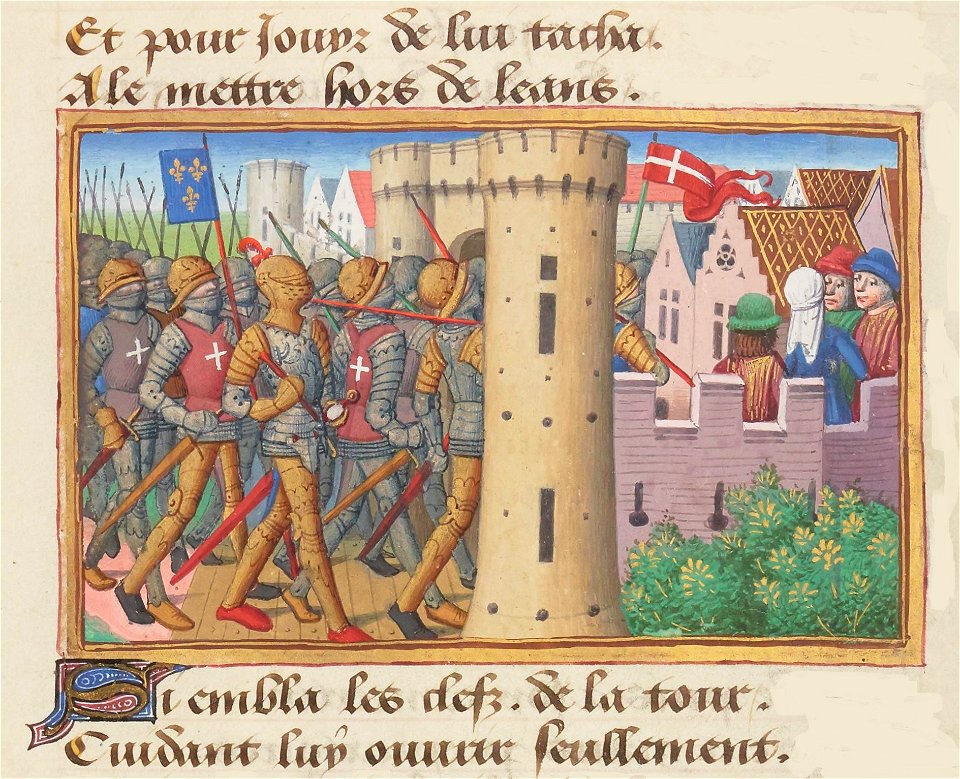 Et pour Jouyr de lui tacha.
A le mettre hors de leans.
Si embla les clefz. de la tour.
Cuidant luy ouurir seullement.